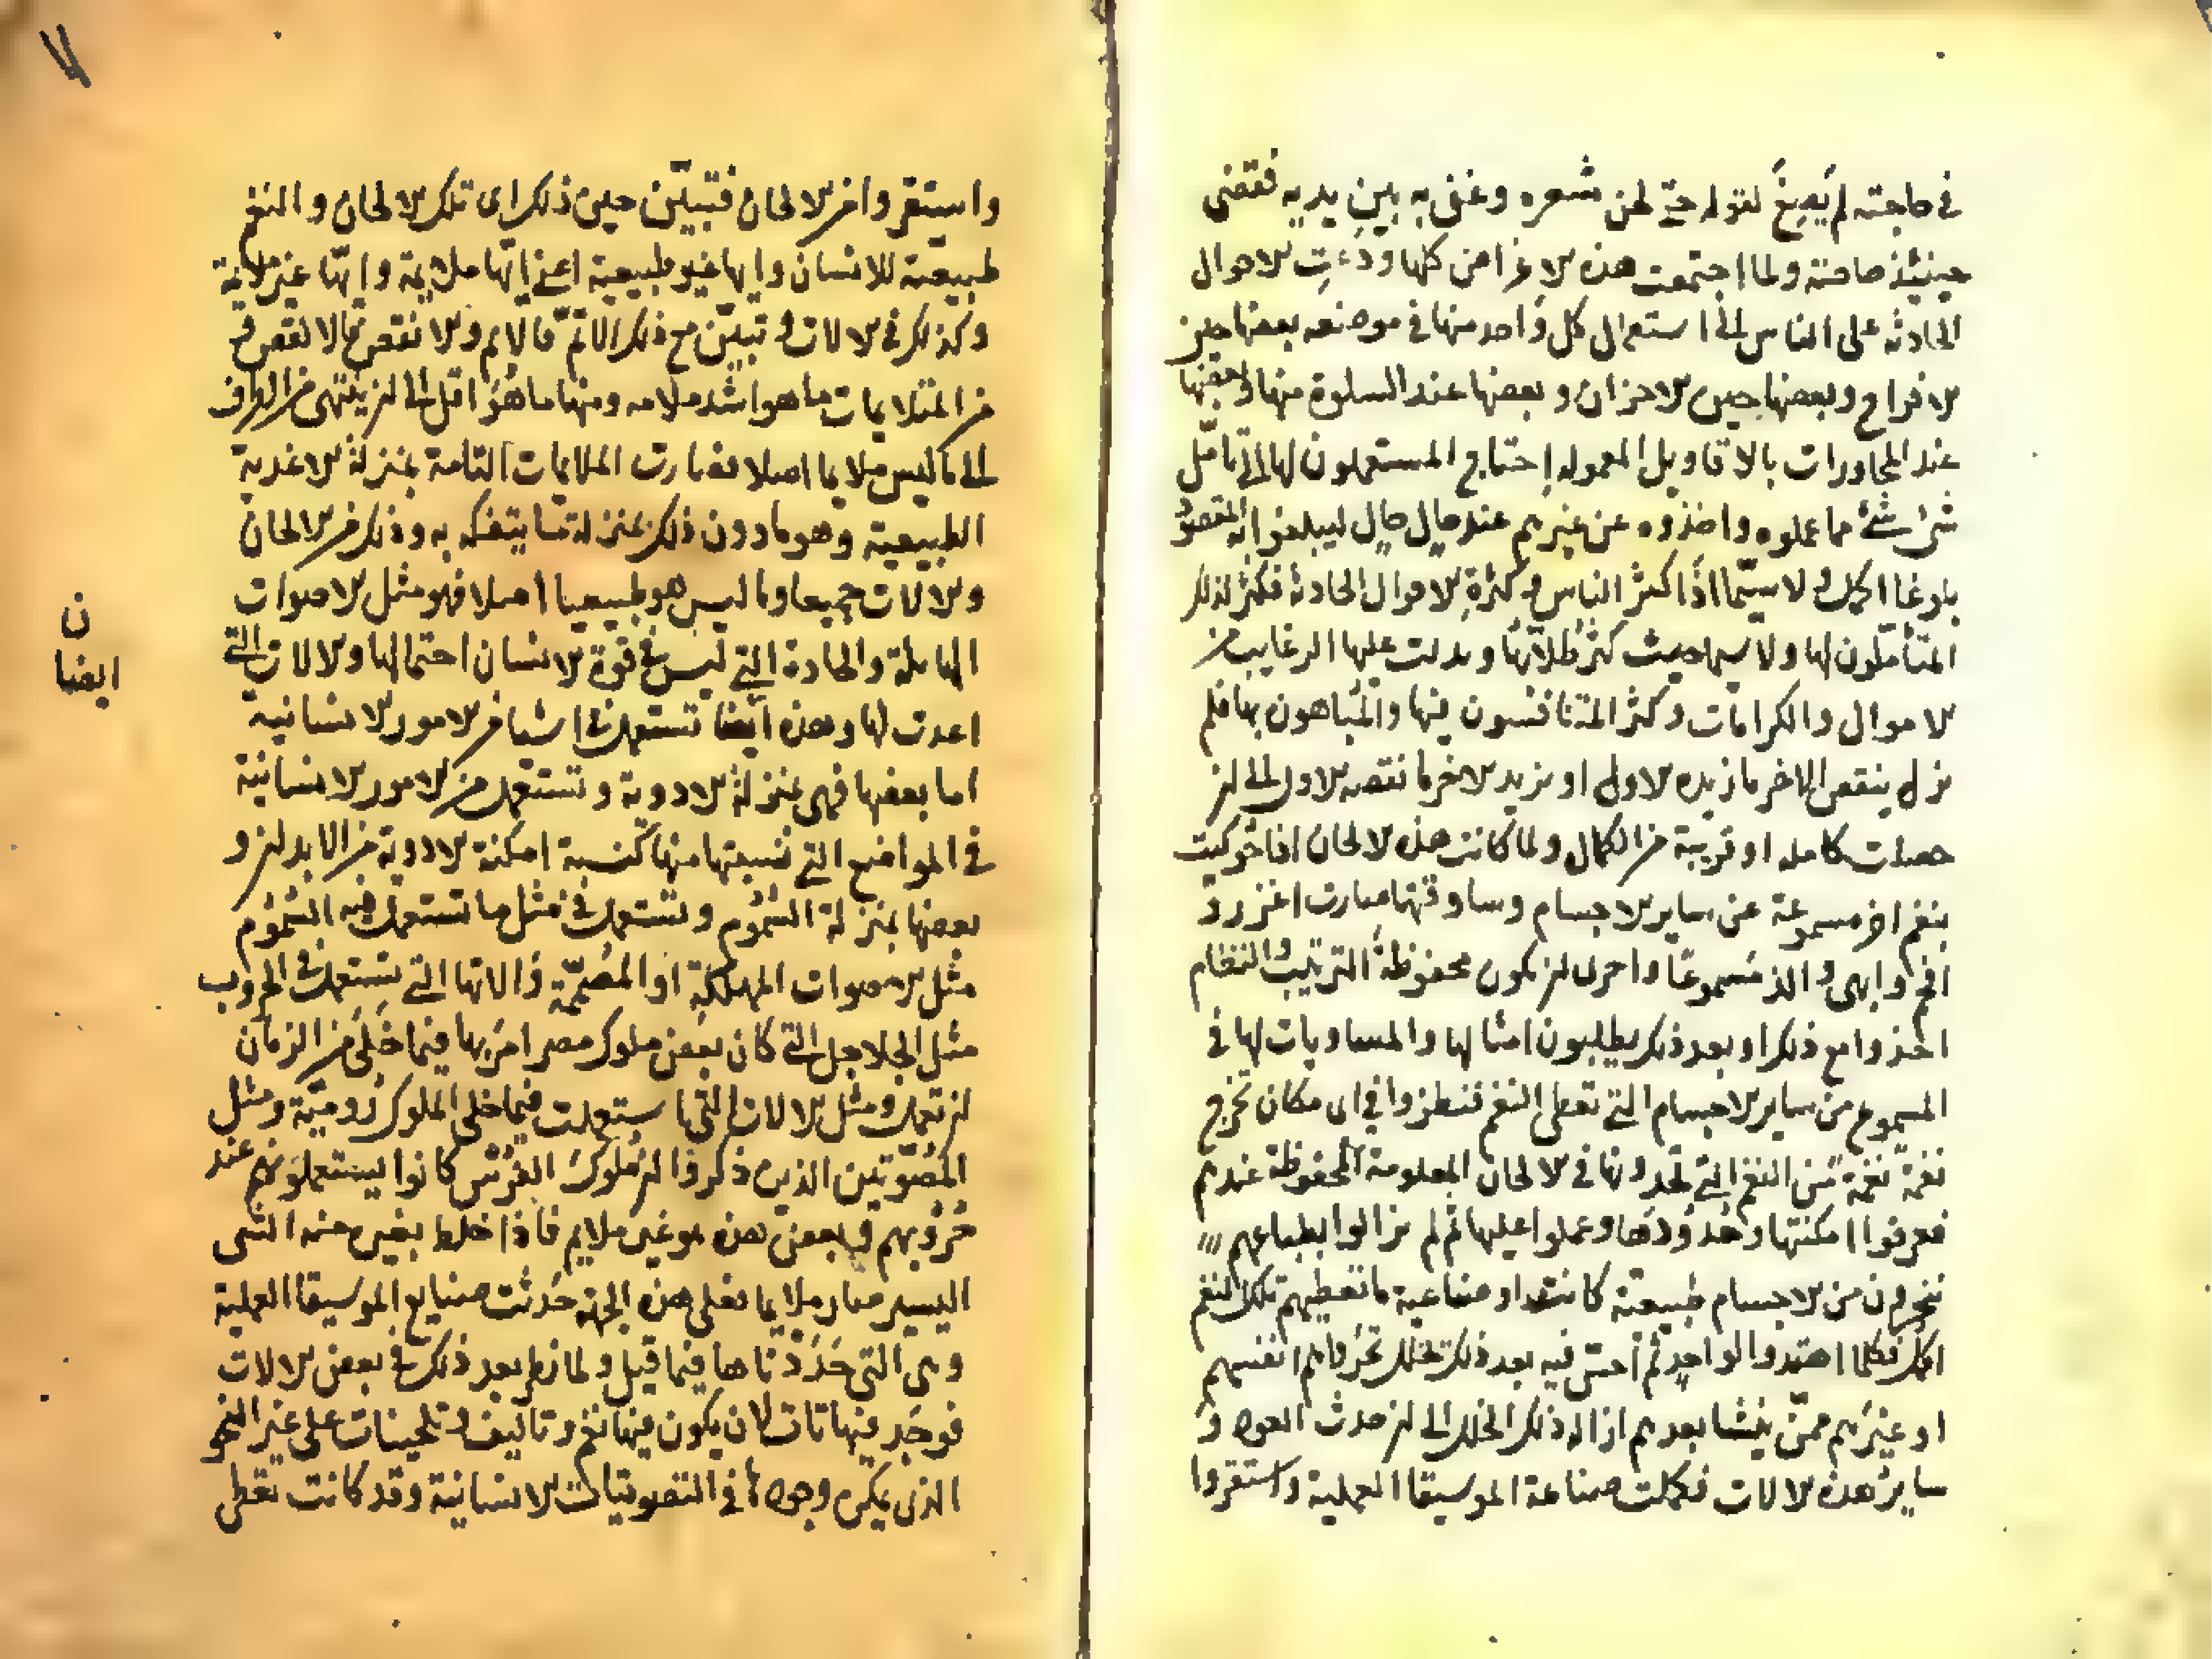 في حاجته لم يصغ لقوله حتى لحن شعره وغنى به بين يديه فقضى
حينئذ حاجته ولما اجتمعت هذه الاغراض كلها ودعت الاحوال
الحادثة على الناس الى استعمال كل واحد منها في موضعه بعضها حين
الافراح وبعضها حين الاحزان وبعضها عند السلوة منها وبعضها
عند المحاورات بالاقاويل المعموله احتاج المستعملون لها الى تامل
شئ شئ مما عملوه واخذوه عن غيرهم عند حال حال ليبلغوا به المقصود
بلوغا اكمل ولا سيما اذا كثر الناس وكثرة الاحوال الحادثة فكثر لذلك
المتأملون لها ولا سيما حيث كثر طلابها وبدلت عليها الرغايب من
الاموال والكرامات وكثر المتنافسون فيها والمتباهون بها فلم
يزل ينقص الاخر ما زيده الاول او يزيد الاخر ما نقصه الاول الى ان
حصلت كامله او قريبة من الكمال ولما كانت هذه الالحان اذا حوكيت
بنغم اخر مسموعة عن ساير الاجسام وساوقتها صارت اغزر و
افخم وابهى والذ مسموعا واحرى ان يكون محفوظة الترتيب والنظام
اخذوا مع ذلك او بعد ذلك يطلبون امثالها والمساويات لها في
المسموع من ساير الاجسام التي تعطى النغم فنظروا في اى مكان تخرج
نغمة نغمة من النغم التي يجدونها في الالحان المعلومة المحفوظة عندهم
فعرفوا امكنتها وحدودها وعملوا عليها ثم لم يزالوا بطباعهم
يتحرون من الاجسام طبيعية كانت او صناعية ما تعطيهم تلك النغم
اكمل فكلما اهتدوا لواحد ثم أحس فيه بعد ذلك بخلل تحروا هم انفسهم
او غيرهم ممن ينشا بعدهم ازالة ذلك الخلل الى ان حدث العود و
ساير هذه الالات فكملت صناعة الموسيقا العملية واستقروا
واستقر وامر الالحان فتبين حين ذلك اى تلك الالحان والنغم
طبيعية للانسان وايها غير طبيعية اعني ايها ملايمة وايها غير ملايمة
وكذلك في الالات وتبين مع ذلك الاتم فالاتم والانقص فالانقص
من المتلايمات ما هو اشد ملامه ومنها ما هو اقل الى ان ينتهى من الاطراف
الى ما ليس ملايما اصلا فصارت الملايمات التامة بمنزلة الاغدية
الطبيعية وهو ما دون ذلك بمنزلة ما يتفكه به وذلك من الالحان
والالات جميعا وما ليس هو طبيعيا اصلا فهو مثل الاصوات
الهايلة والحادة التي ليس في قوة الانسان احتمالها والالات التي
اعدت لها وهذه ايضا تستعمل في اشيا من الامور الانسانية
اما بعضها فهى بمنزلة الادوية وتستعمل من الامور الانسانية
في المواضع التي نسبتها منها كنسبة امكنة الادوية من الابدان و
بعضها بمنزلة السموم وتستعمل في مثل ما تستعمل فيه السموم
مثل الاصوات المهلكة او المصممة والاتها التي تستعمل في الحروب
مثل الجلاجل التي كان بعض ملوك مصر امر بها فيما خلى من الزمان
ان تعمل ومثل الالات التي استعملت فيما خلى الملوك رومية ومثل
المصوتين الذين ذكروا ان ملوك الفرس كانوا يستعملونهم عند
حروبهم وبعض هذه هو غير ملايم فاذا خلط بغيره منه الشى
اليسير صار ملايما فعلى هذه الجهة حدثت صنايع الموسيقا العملية
وهى التي حددناها فيما قبل ولما نظر بعد ذلك في بعض الالات
فوجد فيها تات لان يكون فيها نغم وتاليف وتلحينات على غير النحو
الذى يمكن وجوده في التصويتات الانسانية وقد كانت تعطى
ن
ايضا